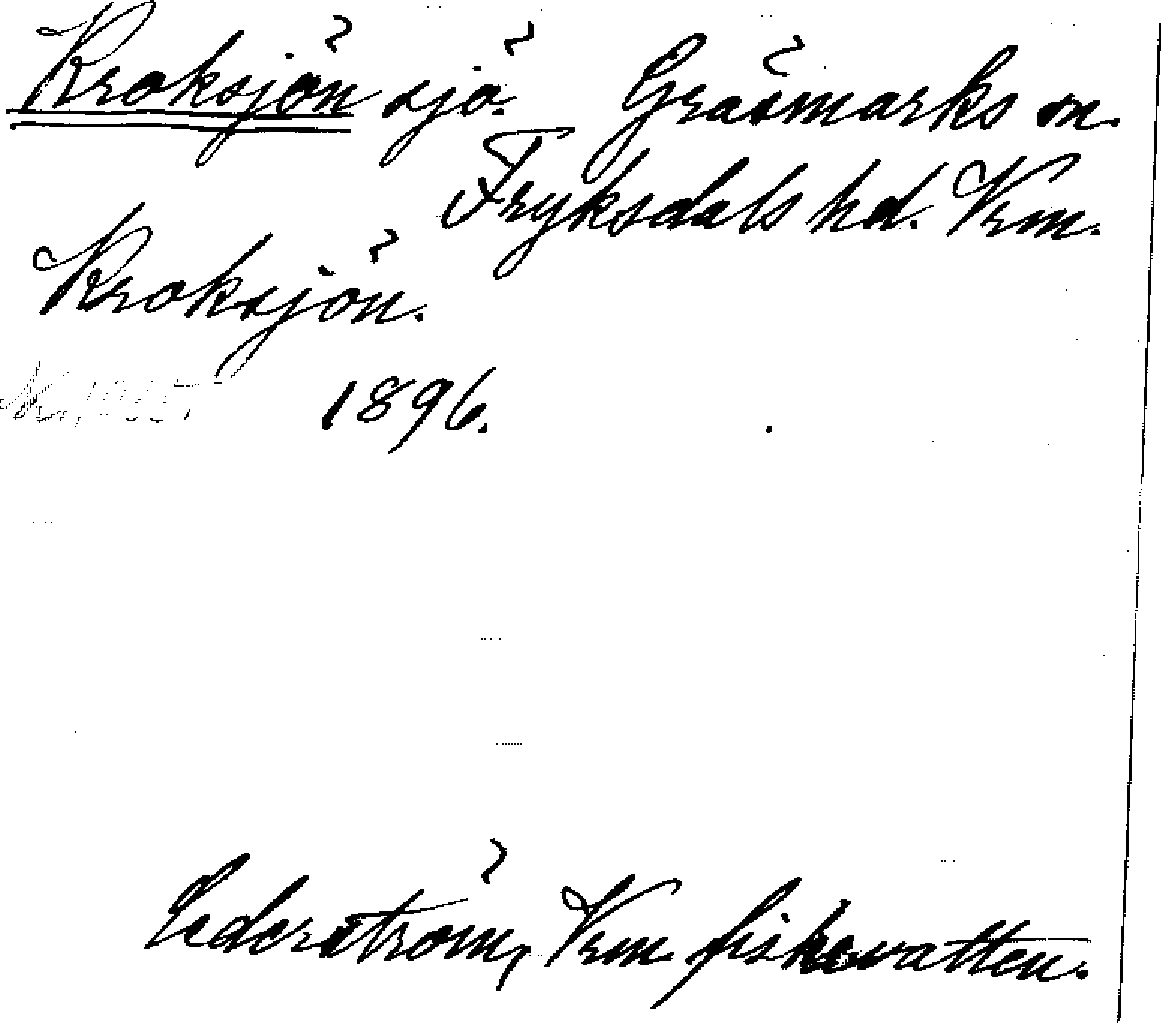 Kroksjön sjö. Gräsmarks sn.
Fryksdals hd. Vrm.
Kroksjön.
1896.
Cederström, Vrm fiskevatten.